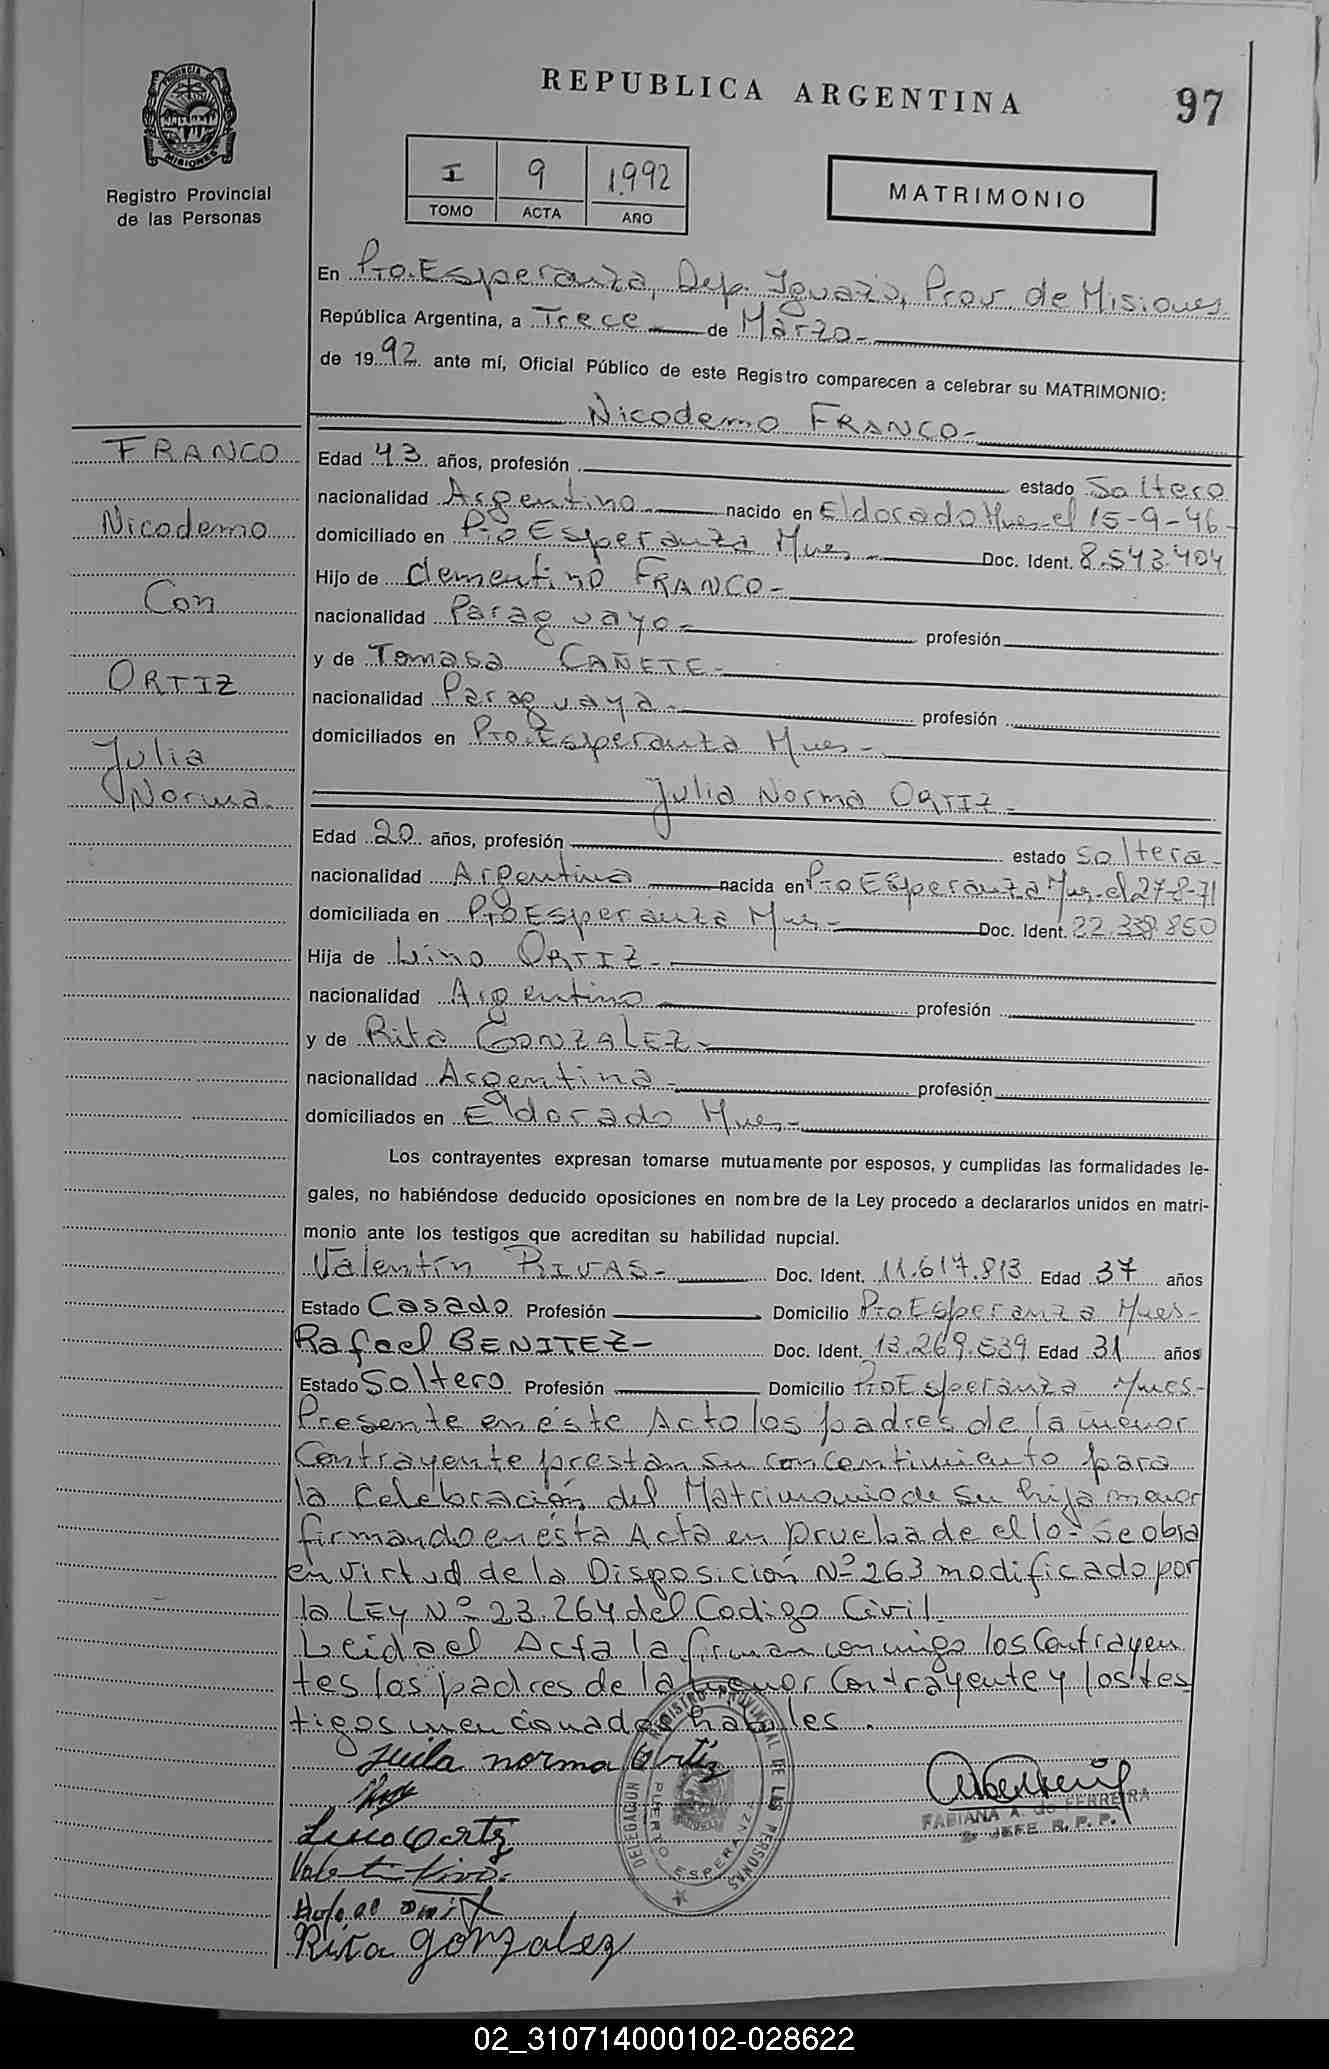 REPUBLICA ARGENTINA
97
PROVINCIA DE
MISIONES
Registro Provincial
de las Personas
I 9 1.992
TOMO ACTA AÑO
MATRIMONIO
En Pto. Esperanza, Dep. Iguazú, Prov. de Misiones
República Argentina, a Trece de Marzo-
de 1992 ante mí, Oficial Público de este Registro comparecen a celebrar su MATRIMONIO:
Nicodemo FRANCO-
FRANCO
Nicodemo
Con
ORTIZ
Julia
Norma
Edad 43 años, profesión estado Soltero
nacionalidad Argentino nacido en Eldorado Mnes. el 15-9-46-
domiciliado en Pto Esperanza Mnes Doc. Ident. 8.543.404
Hijo de Clementino FRANCO-
nacionalidad Paraguayo- profesión
y de Tomasa CAÑETE-
nacionalidad Paraguaya- profesión
domiciliados en Pto. Esperanza Mnes-
Julia Norma ORTIZ-
Edad 20 años, profesión estado soltera-
nacionalidad Argentina nacida en Pto Esperanza Mnes. el 27-8-71
domiciliada en Pto Esperanza Mnes- Doc. Ident. 22.338.850
Hija de Lino ORTIZ-
nacionalidad Argentino profesión
y de Rita GONZALEZ-
nacionalidad Argentina- profesión
domiciliados en Eldorado Mnes-
Los contrayentes expresan tomarse mutuamente por esposos, y cumplidas las formalidades le-
gales, no habiéndose deducido oposiciones en nombre de la Ley procedo a declararlos unidos en matri-
monio ante los testigos que acreditan su habilidad nupcial.
Valentín RIVAS- Doc. Ident. 11.617.813 Edad 37 años
Estado Casado Profesión Domicilio Pto Esperanza Mnes-
Rafael BENITEZ- Doc. Ident. 13.269.539 Edad 31 años
Estado Soltero Profesión Domicilio Pto Esperanza Mnes-
Presente en éste Acto los padres de la menor
Contrayente prestan su concentimiento para
la Celebración del Matrimonio de su hija menor
firmando en ésta Acta en prueba de ello- Se obra
en virtud de la Disposición Nº 263 modificado por
la LEY Nº 23.264 del Codigo Civil.
Leida el Acta la firman conmigo los Contrayen
tes los padres de la menor Contrayente y los tes
tigos mencionados habiles.
Julia norma Ortiz
Lino Ortiz
Rita gonzalez
DELEGACION REGISTRO PROVINCIAL DE LAS PERSONAS
PUERTO ESPERANZA
FABIANA A. de FERREIRA
2º JEFE R. P. P.
02_310714000102-028622